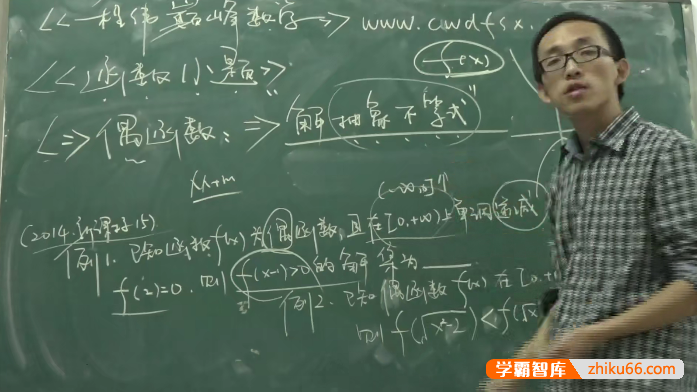 <<一程结云巅峰数学——> www.cwdfsx.
<<函数小题>>
f(x)
<2>偶函数: => 解"抽象不等式"
(2014.新课标15)
例1. 已知函数f(x)为偶函数,且在[0,+∞)上单调递减
f(2)=0. 则f(x-1)>0的解集为
例2. 已知偶函数f(x)在[0,+
则f(√x²-2)<f(√x
学霸智库 zhiku66.com